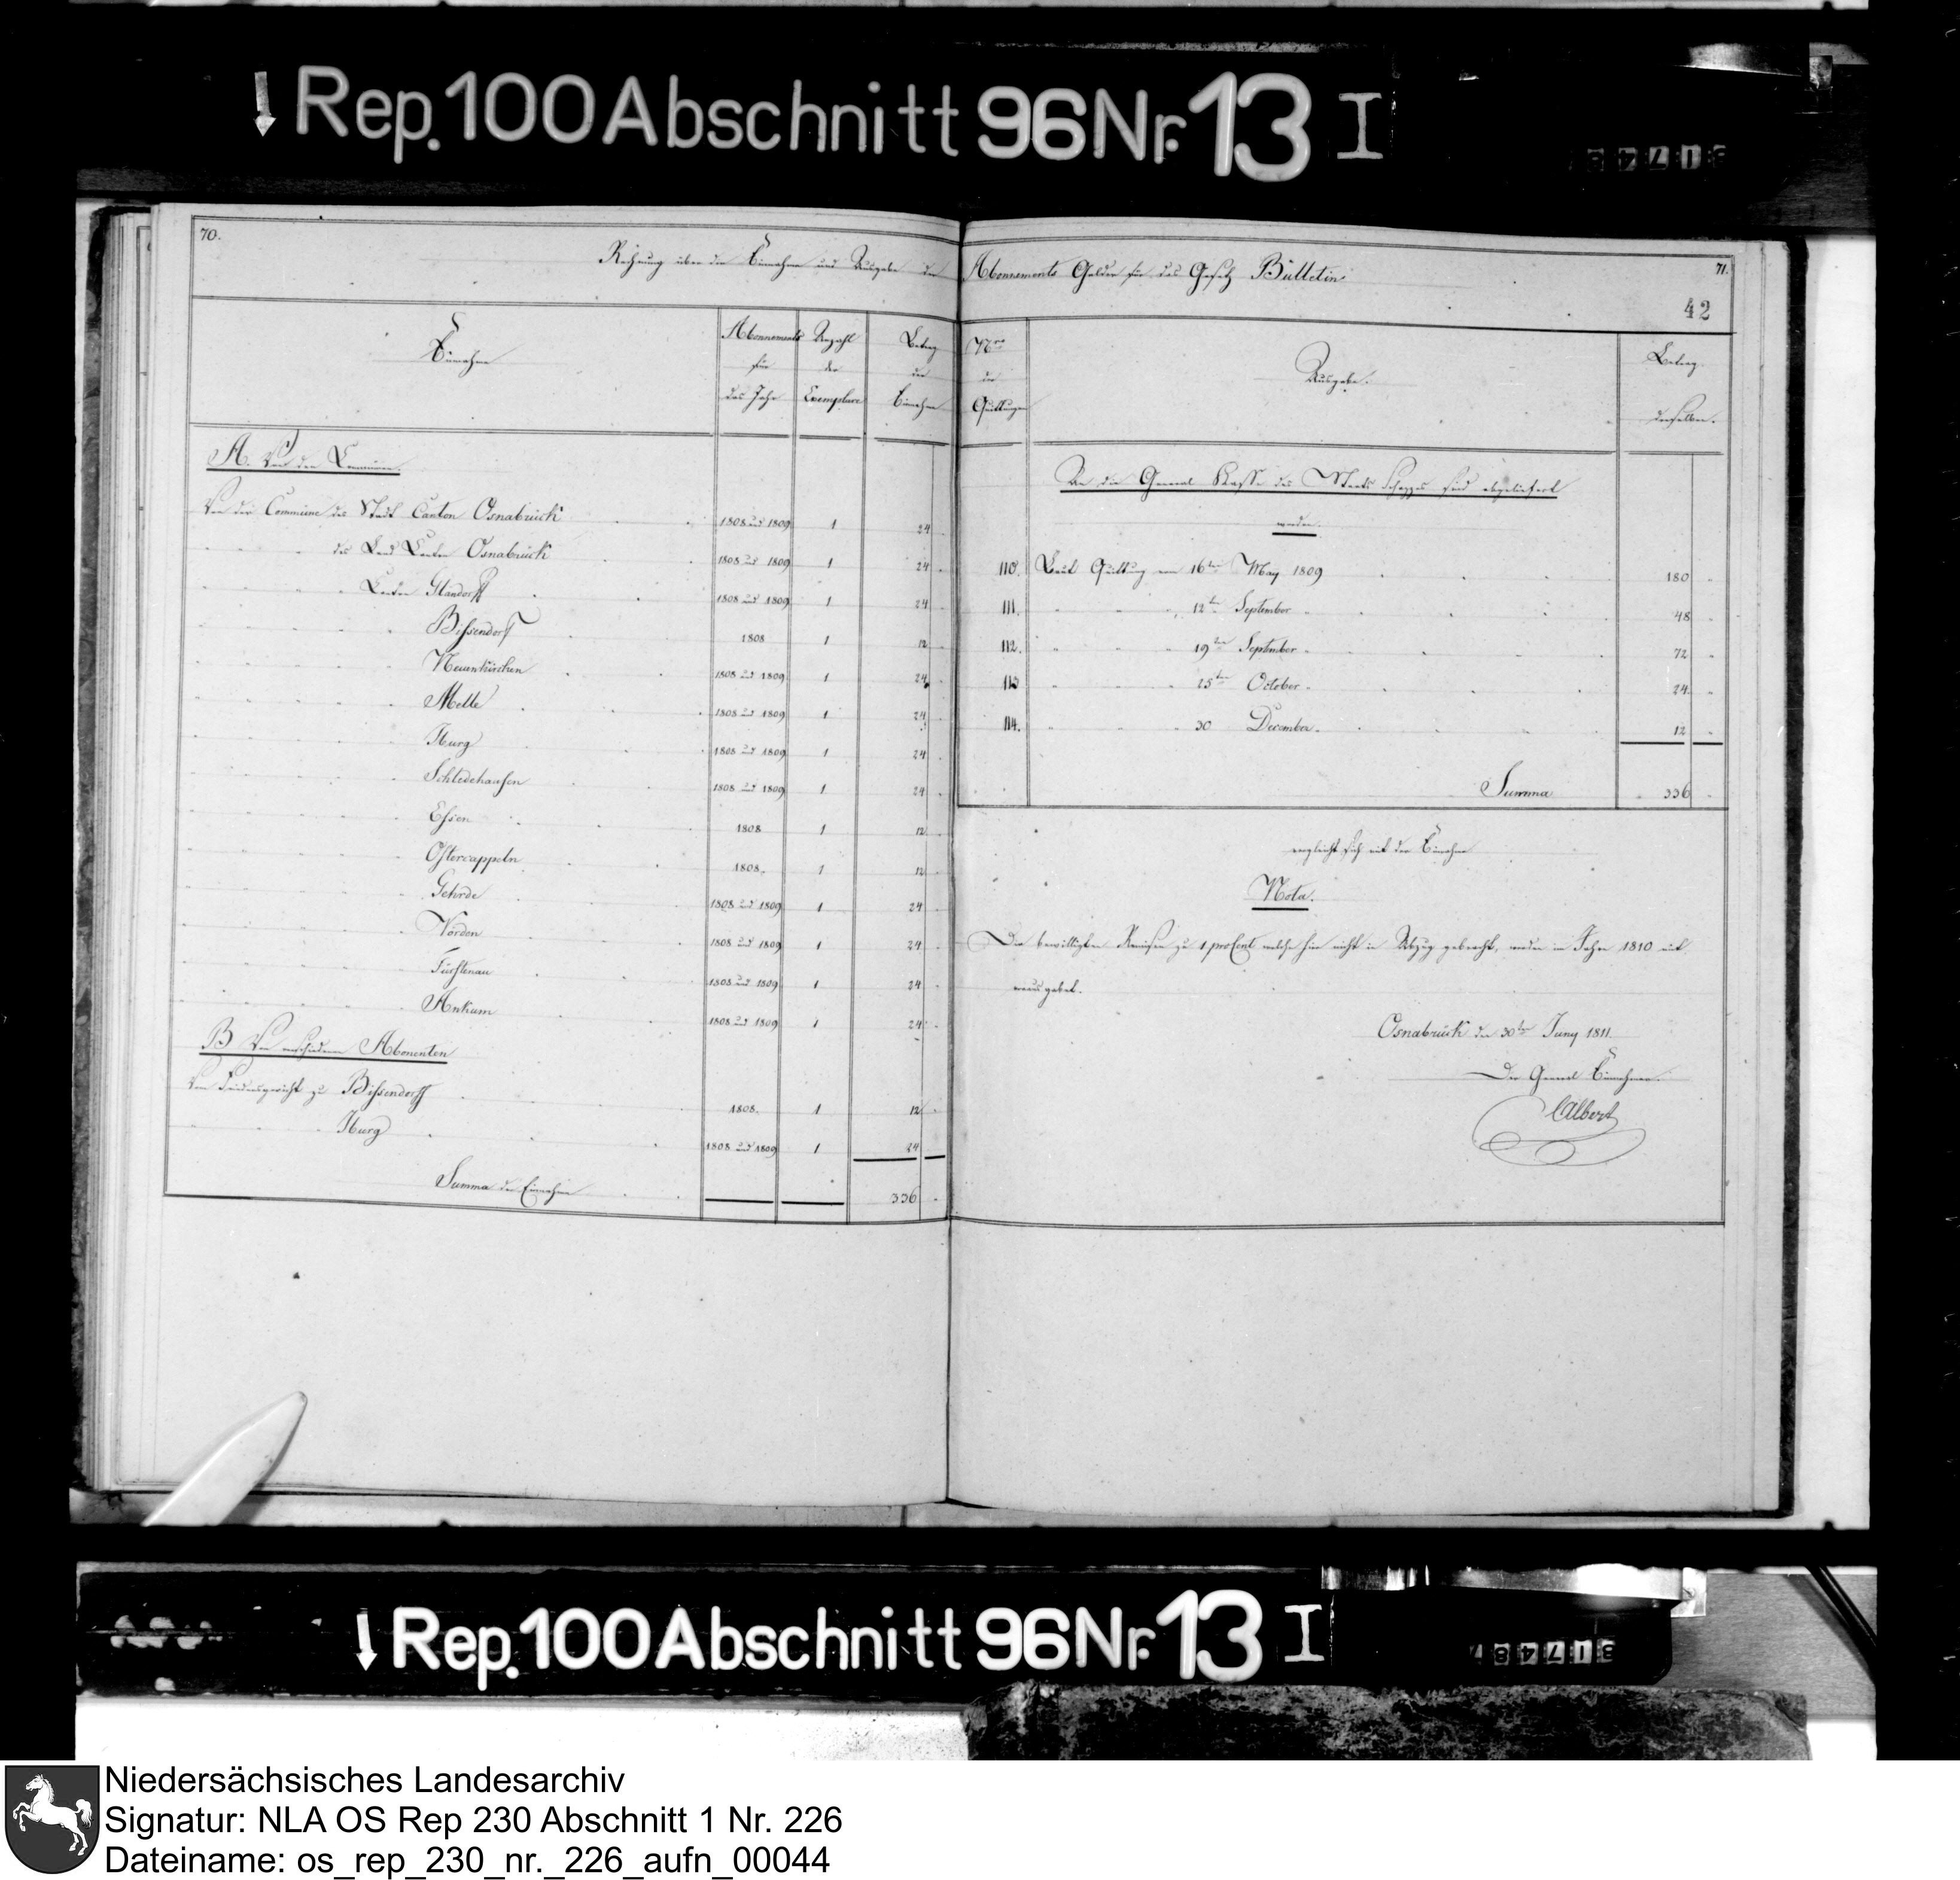 Rep. 100 Abschnitt 96 Nr. 13 I
70.
Rechnung über die Einnahme und Ausgabe der Abonnements Gelder für das Gesetz Bulletin
71.
42
Einnahme
Abonnements für das Jahr
Anzahl der Exemplare
Betrag der Einnahme
A. Von den Communen.
Von der Commune des Stadt Canton Osnabrück 1808 und 1809 1 24
des Land Canton Osnabrück 1808 und 1809 1 24
Canton Glandorff 1808 und 1809 1 24
Bissendorf 1808 1 12
Neuenkirchen 1808 und 1809 1 24
Melle 1808 und 1809 1 24
Iburg 1808 und 1809 1 24
Schledehausen 1808 und 1809 1 24
Essen 1808 1 12
Ostercappeln 1808. 1 12
Gehrde 1808 und 1809 1 24
Vörden 1808 und 1809 1 24
Fürstenau 1808 und 1809 1 24
Ankum 1808 und 1809 1 24
B Von verschiedenen Abonenten
Vom Friedensgericht zu Bissendorff 1808. 1 12
Iburg 1808 und 1809 1 24
Summa der Einnahme 336
Nro der Quittungen
Ausgabe.
Betrag derselben.
An die General Kasse des Staats Schazzes sind abgeliefert
worden.
110. Laut Quittung vom 16ten May 1809 180
111. 12ten September 48
112. 19ten September 72
113 25ten October 24
114. 30 December. 12
Summa 336
vergleicht sich mit der Einnahme
Nota.
Die bewilligten Remisen zu 1 proCent welche hier nicht in Abzug gebracht, werden im Jahr 1810 mit
verausgabet.
Osnabrück den 30ten Juny 1811.
Der General Einnehmer.
CAlbert
Rep. 100 Abschnitt 96 Nr. 13 I
Niedersächsisches Landesarchiv
Signatur: NLA OS Rep 230 Abschnitt 1 Nr. 226
Dateiname: os_rep_230_nr._226_aufn_00044